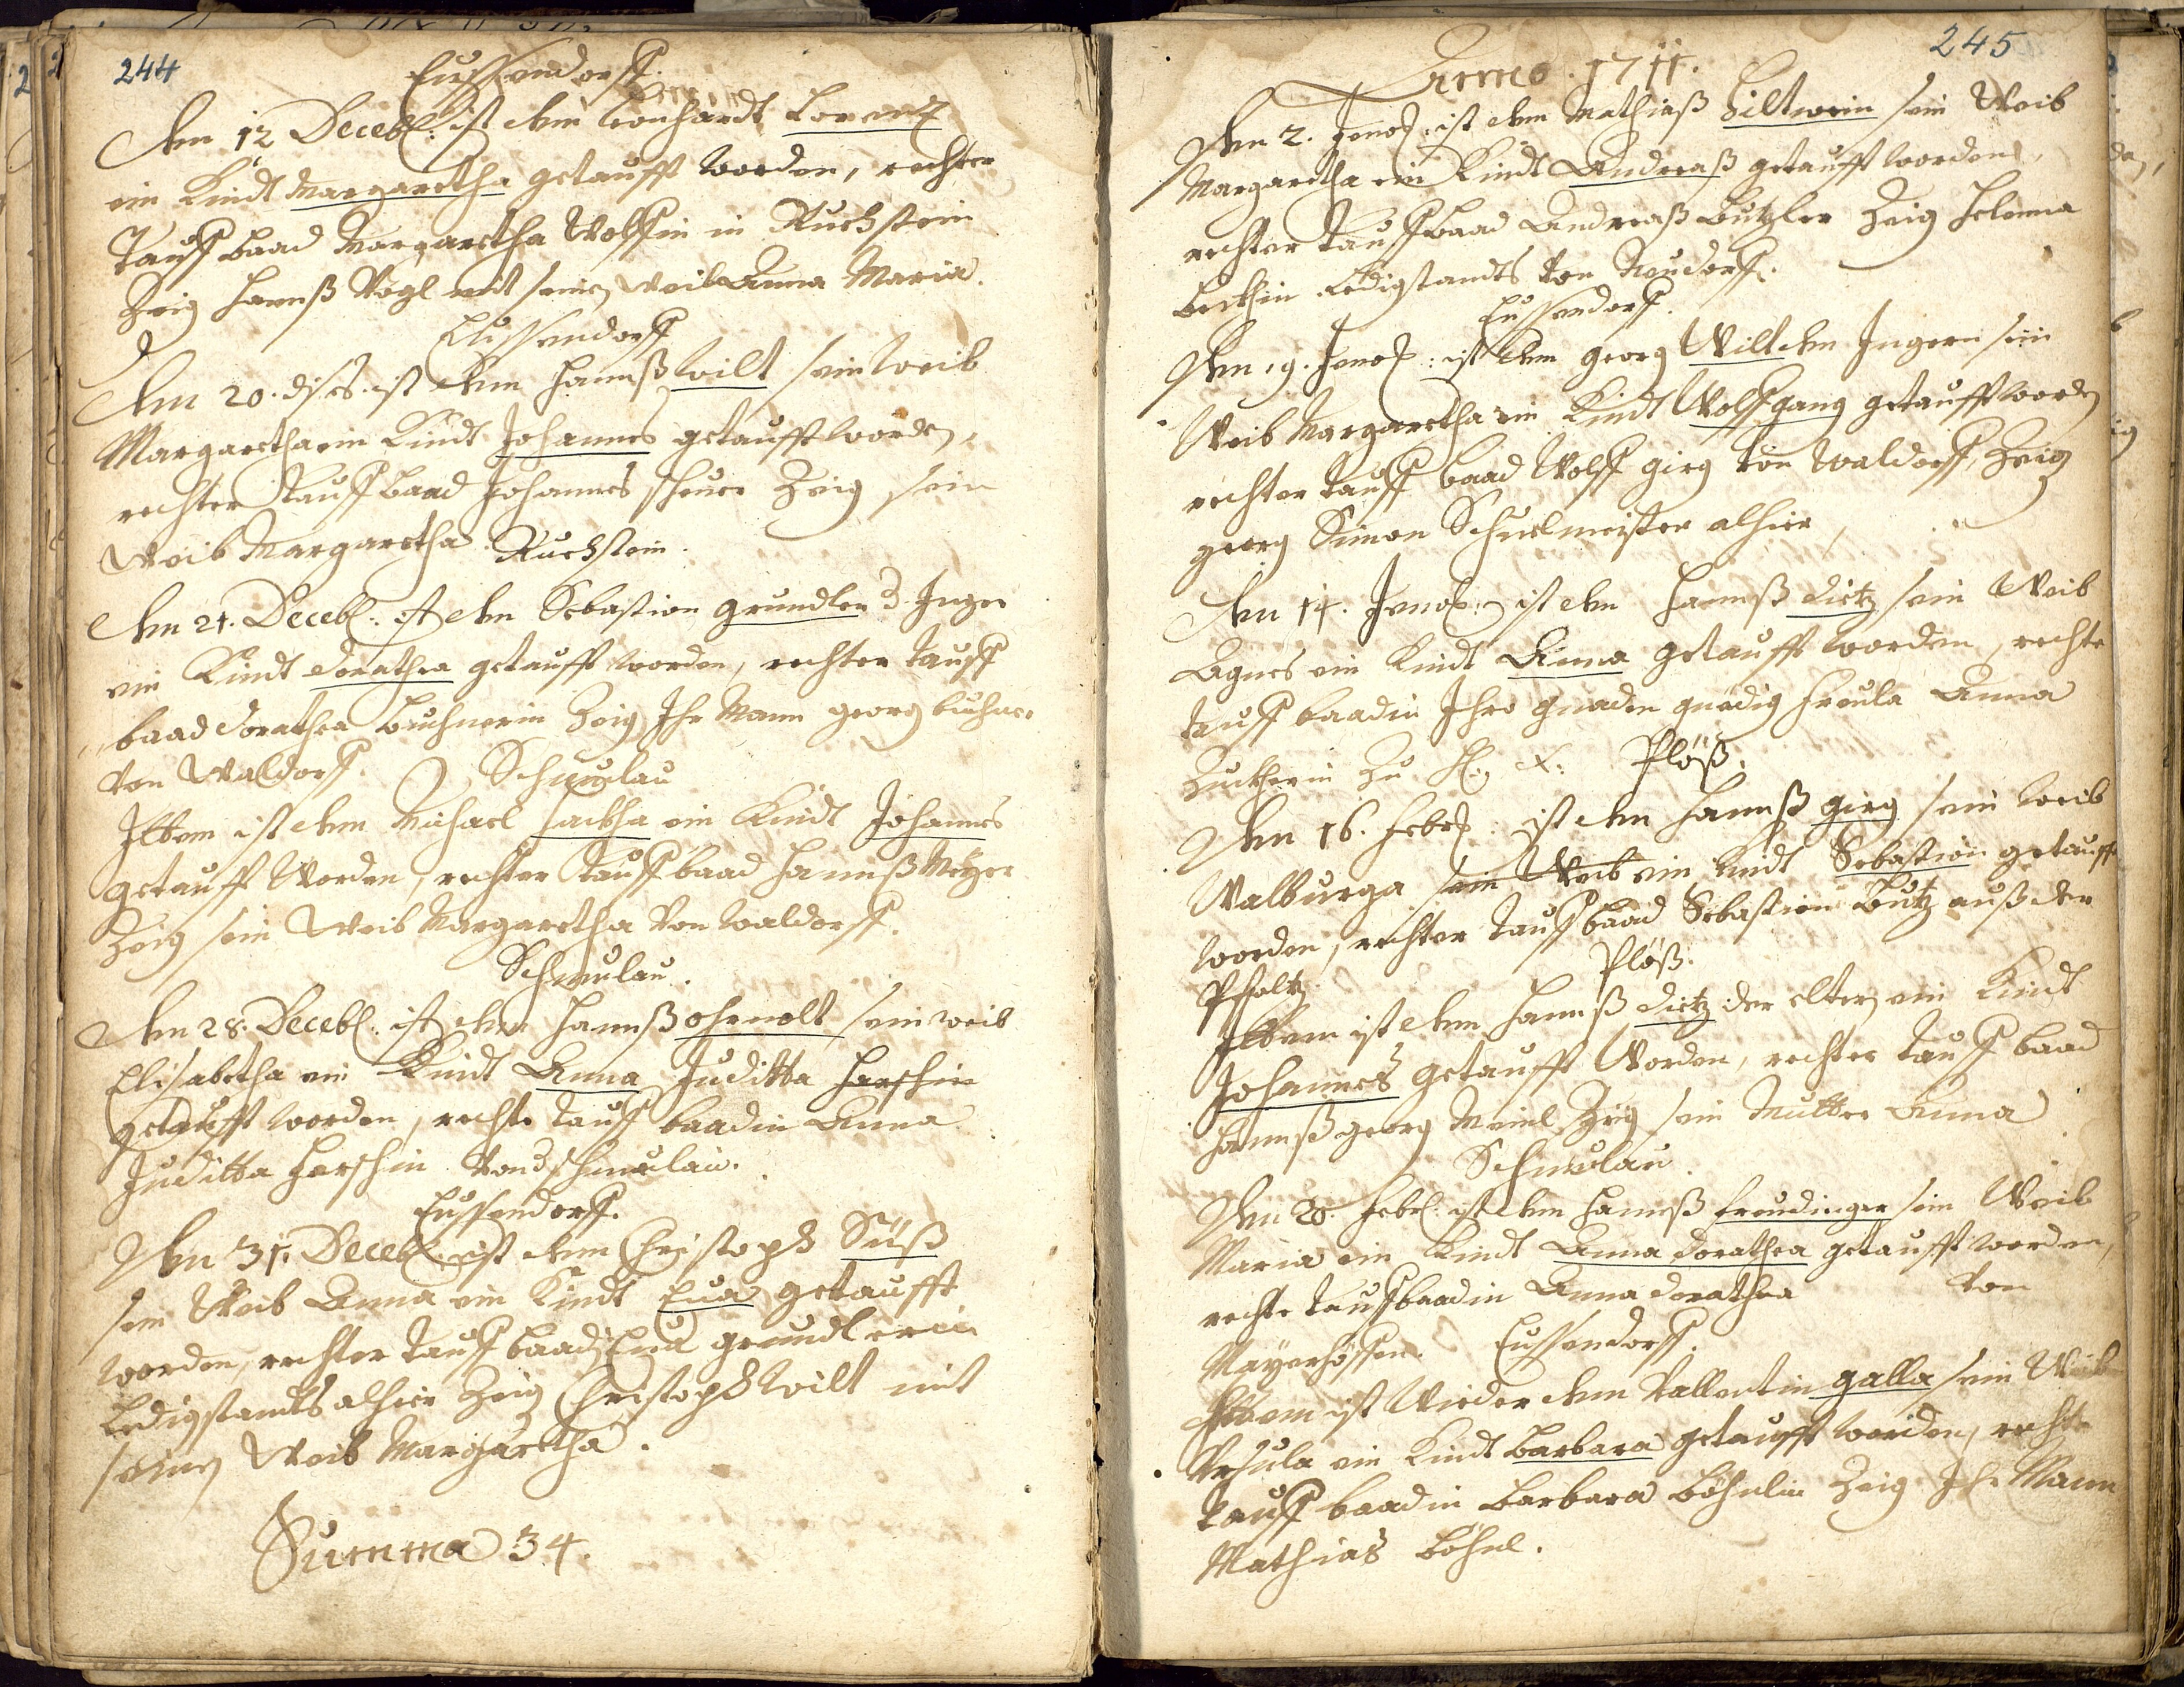 244
Eussendorff.
Den 12 Decebl: ist dem Leonhardt Lorentz
ein Kindt Margaretha getaufft worden, rechter
Tauff baad Margaretha Wolffin in Ruchstein
Zeig Hannß Vogl mit seinen weib Anna Maria.
Eussendorff
Den 20. dises ist dem Hannß Wilt sein weib
Margaretha ein Kindt Johannes getaufft worden,
rechter tauff baad Johannes scheuer Zeig sein
Weib Margaretha. Ruchstein.
Den 21. Decebl: ist dem Sebastion grundler d. Inger
ein Kindt dorathea getaufft worden, rechter tauff
baad dorathea buchnerin Zeig Ihr Mann georg buchner
von Waldorff. Schmulau
Ittem ist dem Michael hackha ein Kindt Johannes
getaufft Worden, rechter tauff baad Hannß Metzer
Zeig sein Weib Margaretha von Waldorff.
Schmulau.
Den 28. Decebl: ist dem Hannß ohrnolt sein weib
Elisabetha ein Kindt Anna Juditta harschin
getaufft worden, rechte tauff baadin Anna
Juditta harschin von Schmulau.
Eussendorff.
Den 31. Decebl: ist dem Christoph Süß
sein Weib Anna ein Kindt Eua getaufft
worden, rechter tauff baad Eua grundlerin
Ledigstandts alhier Zeig Christoph Wilt mit
seinen Weib Margaretha.
Summa 34.
245
Anno 1711.
Den 2. Jenor: ist dem Mathiaß Hiltwein sein Weib
Margaretha ein Kindt Andreaß getaufft worden,
rechter tauff baad Andreaß Butzler Zeig Helenna
Beckhin Ledigstandts von Neudorff.
Eussendorff.
Den 9. Jenor: ist dem georg Wilt dem Ingern sein
Weib Margaretha ein Kindt Wolffgang getaufft worden
rechter tauff baad Wolff girg von Waldorff, Zeig
georg Simon Schuelmeister alhier,
Den 14. Jenor: ist dem Hannß dietz sein Weib
Agnes ein Kindt Anna getaufft worden, rechte
tauff baadin Ihro gnaden gnedig freula Anna
Zu Plöß.
Den 16. Febr: ist dem Hannß girg sein weib
Walburga sein Weib ein kindt Sebastion getaufft
worden, rechter tauff baad Sebastion Butz auß der
Pfaltz Plöß.
Ittem ist dem Hannß dietz der elter ein Kindt
Johannes getaufft Worden, rechter tauff baad
Hannß georg Meinl Zeig sein Mutter Anna
Schmulau.
Den 28. Febr: ist dem Hannß freudinger sein Weib
Maria ein Kindt Anna dorathea getaufft worden,
rechte tauff baadin Anna dorathea von
Mayerhöffen. Eussendorff.
Ittem ist Wieder dem Vallentin galla sein Weib
Vrsula ein Kindt Barbara getaufft worden, rechte
tauff baadin Barbara Böhnlin Zeig Ihr Mann
Mathias Böhnl.